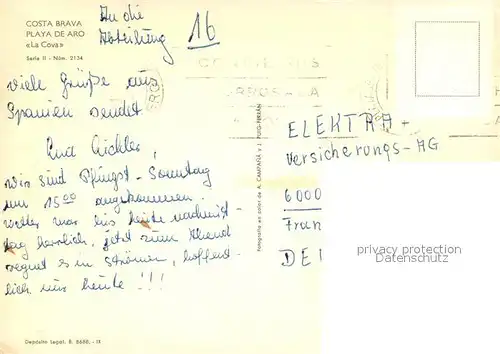 COSTA BRAVA
PLAYA DE ARO
«La Cova»
Serie II - Núm. 2134
An die
Abteilung 16
viele Grüße aus
Spanien sendet
wir sind Pfingst-Sonntag
um 15⁰⁰ angekommen,
wetter war bis heute nachmit-
tag herrlich, jetzt zum Abend
regnet es in Strömen, hoffent-
lich nur heute !!!
Depósito Legal. B. 8688. - IX
Fotografía en color de A. CAMPAÑÁ y J. PUIG-FERRÁN
ELEKTRA -
Versicherungs-AG
6000
Fran
DE
privacy protection
Datenschutz